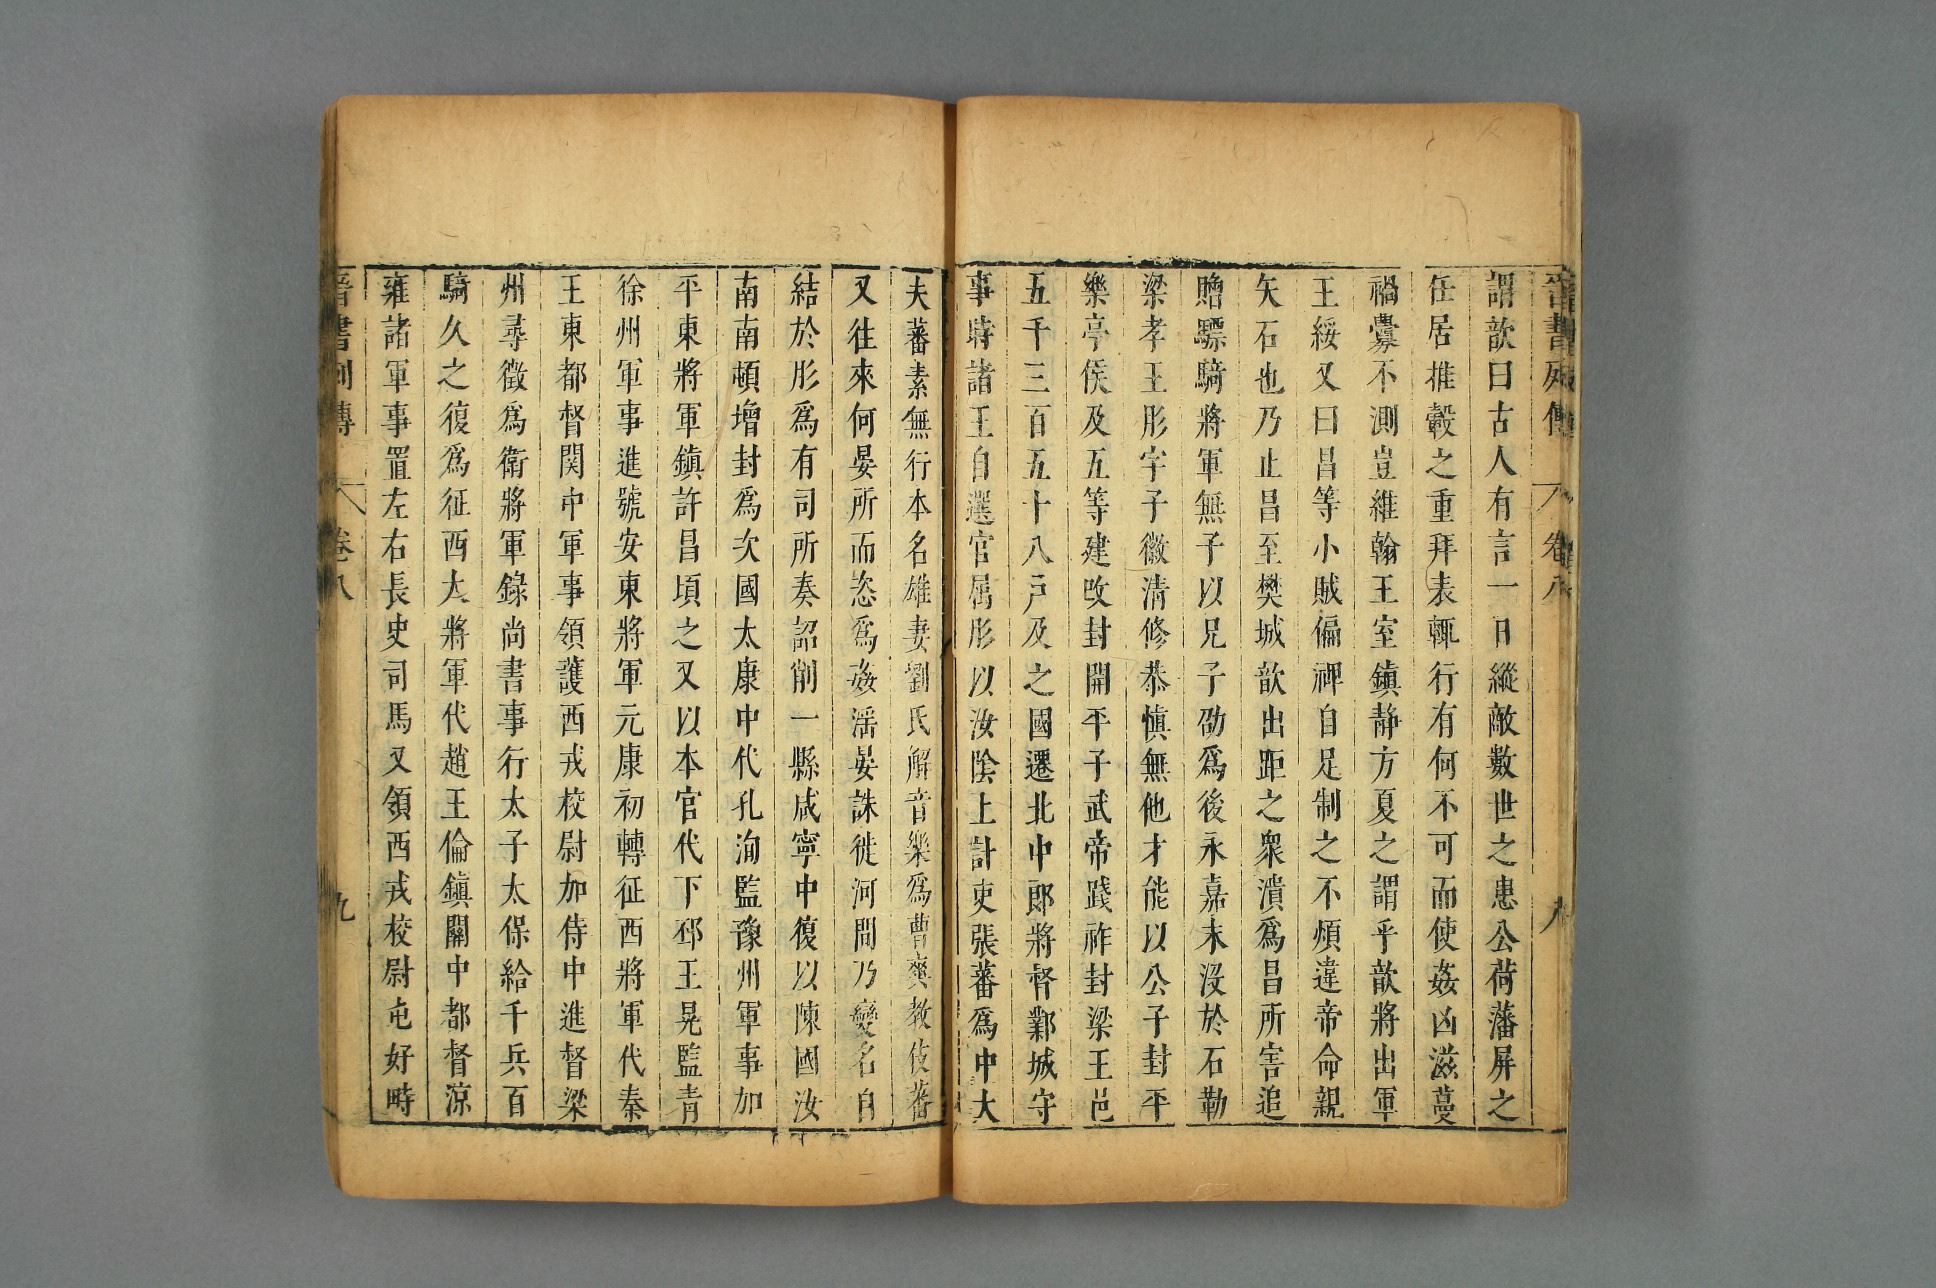 晉書列傳 卷八
謂歆曰古人有言一日縱敵數世之患公荷藩屏之
任居推轂之重拜表輒行有何不可而使姦凶滋蔓
禍釁不測豈維翰王室鎮静方夏之謂乎歆將出軍
王綏又曰昌等小賊偏裨自足制之不煩違帝命親
矢石也乃止昌至樊城歆出距之衆潰爲昌所害追
贈驃騎將軍無子以兄子劭爲後永嘉末没於石勒
梁孝王肜字子徽清修恭慎無他才能以公子封平
樂亭侯及五等建改封開平子武帝踐祚封梁王邑
五千三百五十八戸及之國遷北中郎將督鄴城守
事時諸王自選官属肜以汝陰上計吏張蕃爲中大
夫蕃素無行本名雄妻劉氏解音樂爲曹爽教伎蕃
又往來何晏所而恣爲姦滛晏誅徙河間乃變名自
結於肜爲有司所奏詔削一縣咸寧中復以陳國汝
南南頓增封爲次國太康中代孔洵監豫州軍事加
平東將軍鎮許昌頃之又以本官代下邳王晃監青
徐州軍事進號安東將軍元康初轉征西將軍代秦
王東都督関中軍事領護西戎校尉加侍中進督梁
州尋徵爲衛將軍錄尚書事行太子太保給千兵百
騎久之復爲征西大將軍代趙王倫鎮關中都督涼
雍諸軍事置左右長史司馬又領西戎校尉屯好畤
晉書列傳 卷八 九